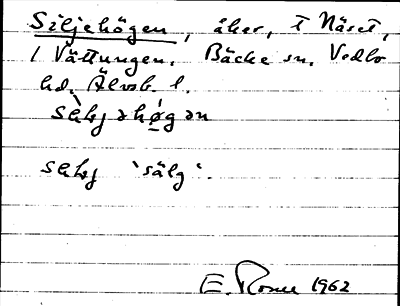 Siljehögen, åker, t Näset,
/ Vättungen. Bäcke sn. Vedbo
hd. Älvsb. l.
sèḷjəhǿgən
seḷj 'sälg'.
E. 1962